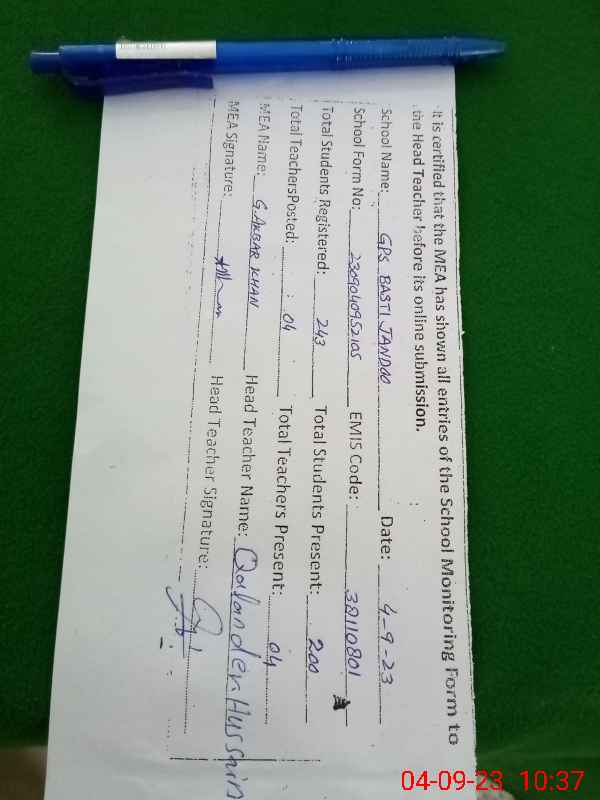 It is certified that the MEA has shown all entries of the School Monitoring Form to
the Head Teacher before its online submission.
School Name: GPS BASTI JANDOO Date: 4-9-23
School Form No: 2309040952105 EMIS Code: 38110801
Total Students Registered: 243 Total Students Present: 200
Total TeachersPosted: 04 Total Teachers Present: 04
MEA Name: G.AKBAR KHAN Head Teacher Name: Qalander Hussain
MEA Signature: Head Teacher Signature:
04-09-23 10:37